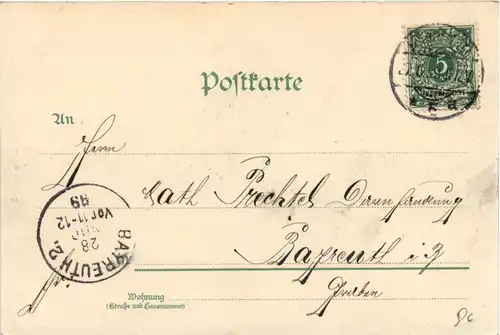 5
Postkarte
An
Herrn
Math Prechtel
Bayreuth i/B
Graben
BAYREUTH 2.
28
Vor 11-12
99
Wohnung
(Straße und Hausnummer)